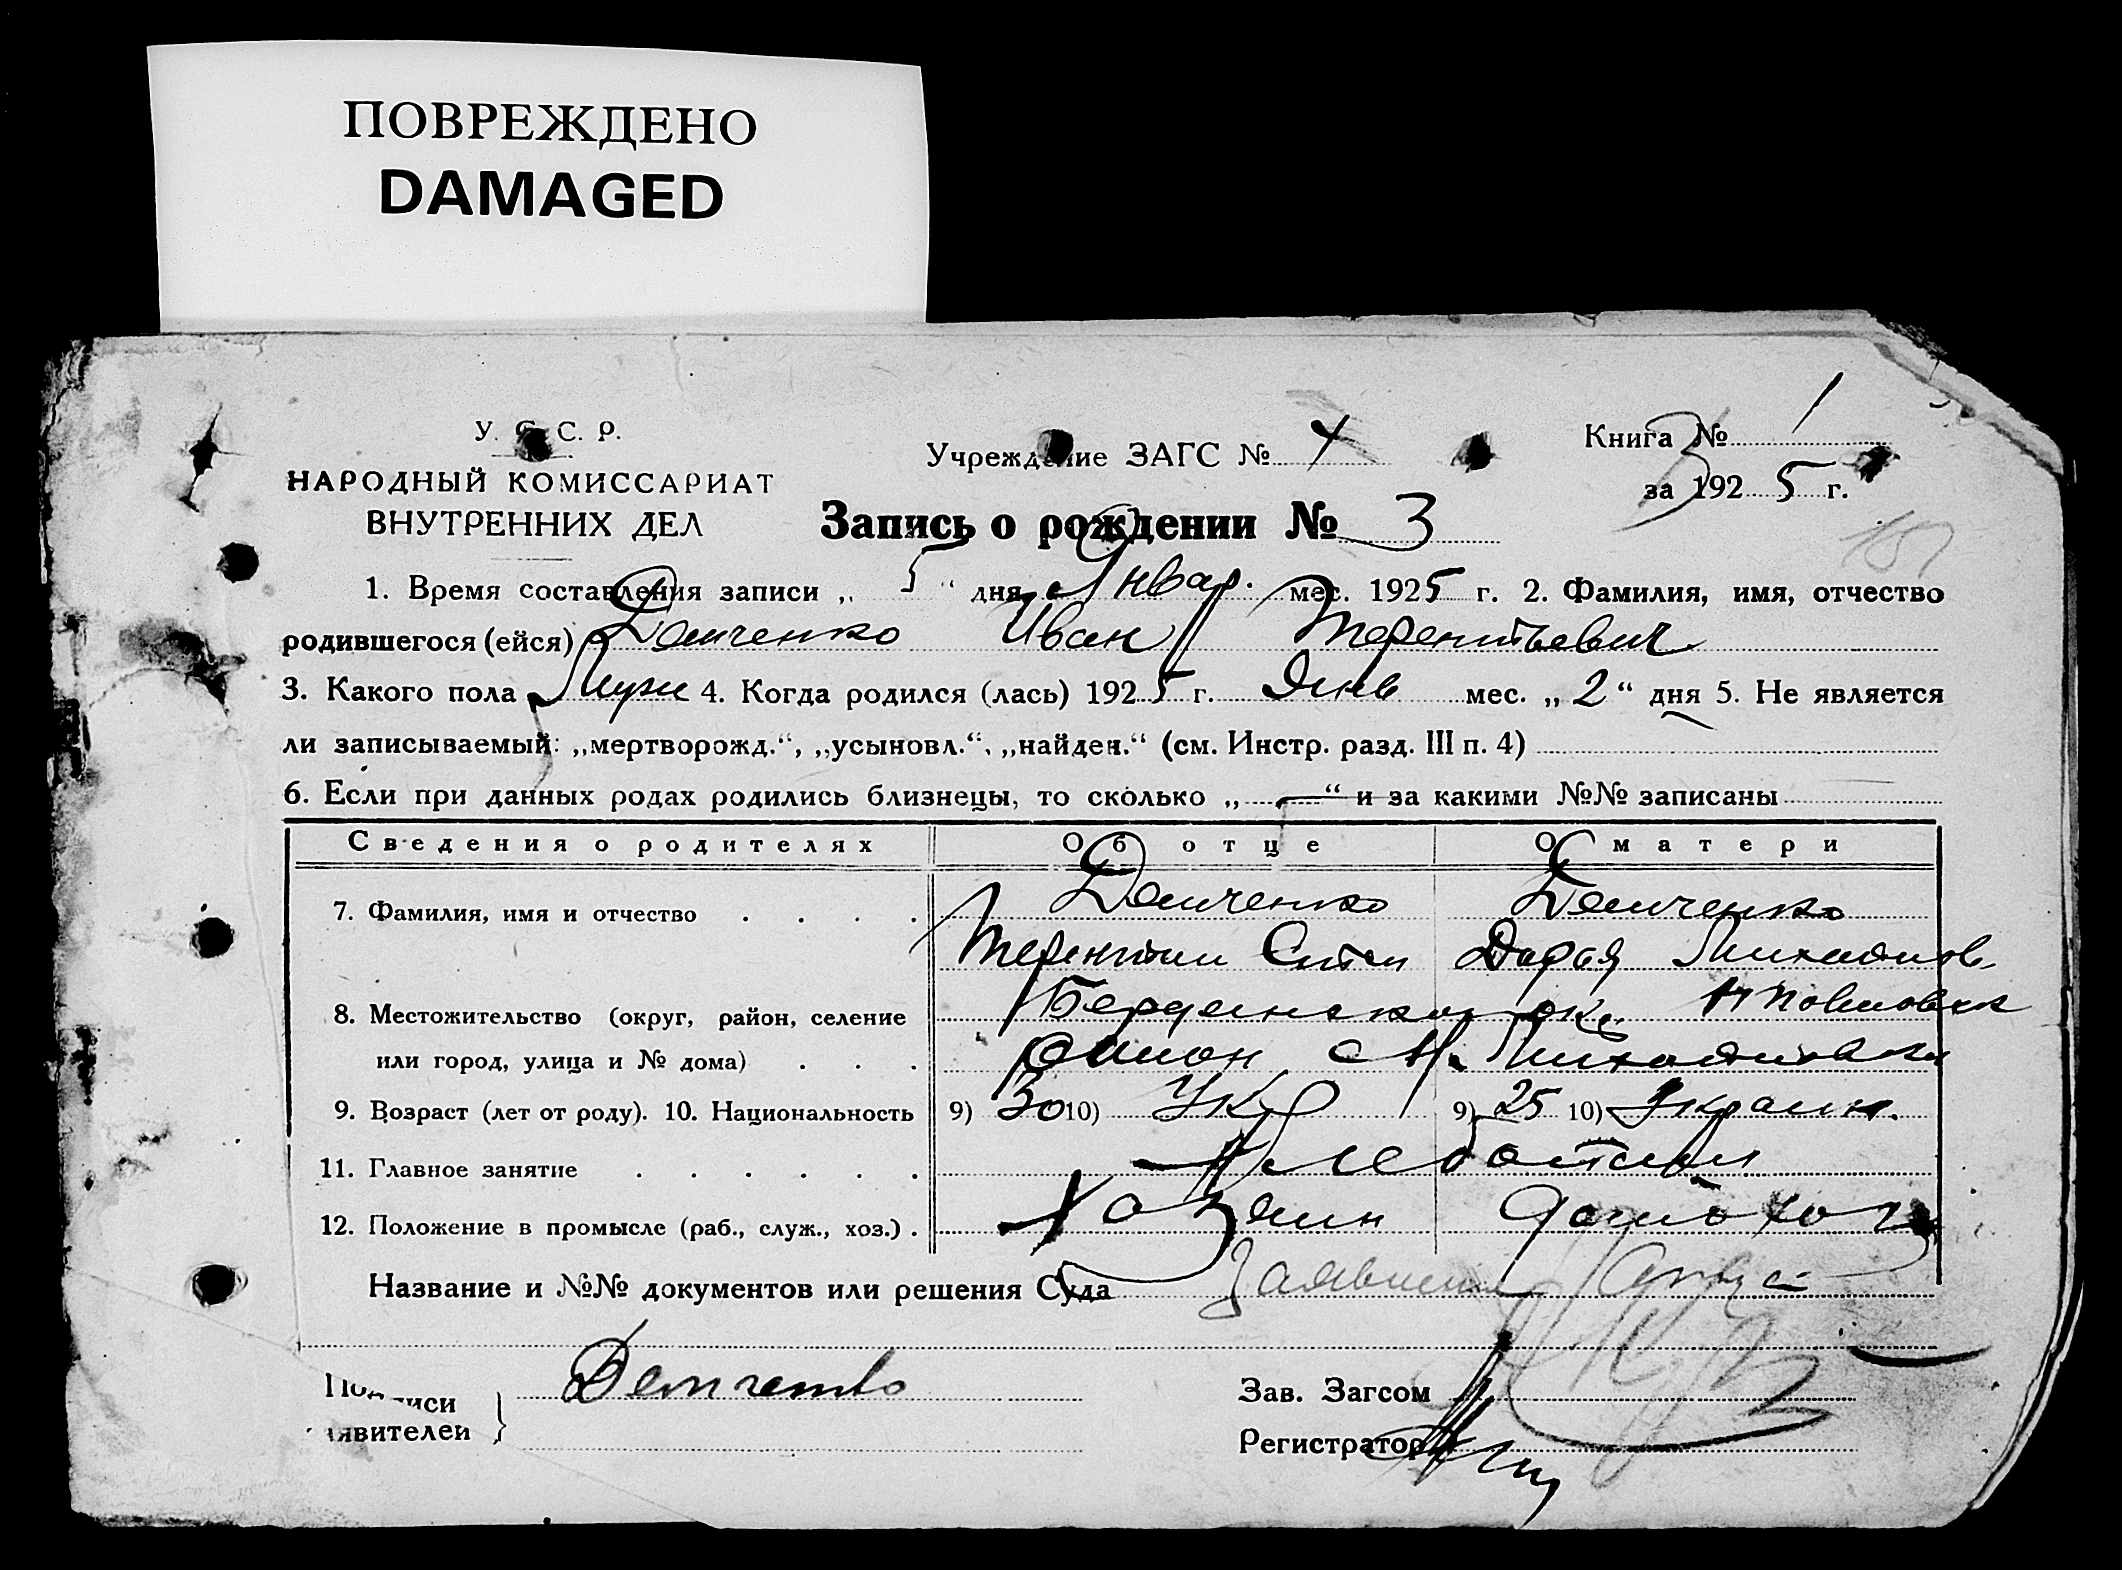 ПОВРЕЖДЕНО
DAMAGED
У. С. С. Р.
НАРОДНЫЙ КОМИССАРИАТ
ВНУТРЕННИХ ДЕЛ
Учреждение ЗАГС №
Книга № 1
за 1925 г.
Запись о рождении № 3
1. Время составления записи „ 5 “ дня Январ. мес. 1925 г. 2. Фамилия, имя, отчество
родившегося (ейся) Демченко Иван Терентьевич
3. Какого пола Муж 4. Когда родился (лась) 1925 г. Янв мес. „ 2 “ дня 5. Не является
ли записываемый: „мертворожд.“, „усыновл.“, „найден.“ (см. Инстр. разд. III п. 4)
6. Если при данных родах родились близнецы, то сколько „ “ и за какими №№ записаны
Сведения о родителях Об отце О матери
7. Фамилия, имя и отчество Демченко Демченко
Терентий Степ Дарья Михайлов.
8. Местожительство (округ, район, селение
или город, улица и № дома) район с М. Михайловка
9. Возраст (лет от роду). 10. Национальность 9) 30 10) Укр 9) 25 10) Украин.
11. Главное занятие Хлебопаш
12. Положение в промысле (раб., служ., хоз.) Хозяин
Название и №№ документов или решения Суда Заявление
Подписи
заявителей } Демченко
Зав. Загсом
Регистратор